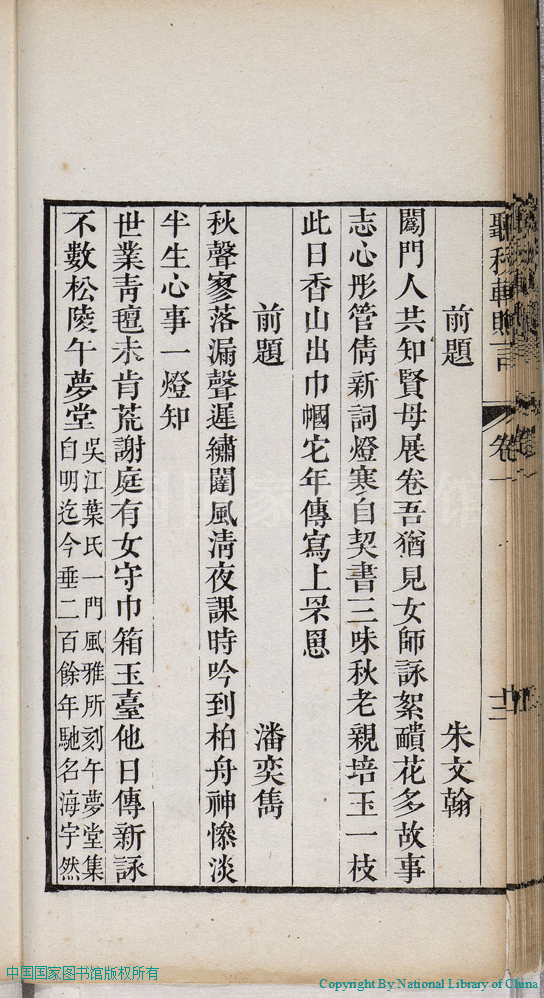 聽秋軒贈言 卷一 十二
前題 朱文翰
闔門人共知賢母展卷吾猶見女師詠絮頮花多故事
志心彤管倩新詞燈寒自契書三味秋老親培玉一枝
此日香山出巾幗它年傳寫上罘罳
前題 潘奕雋
秋聲寥落漏聲遲繡闥風清夜課時吟到柏舟神慘淡
半生心事一燈知
世業青氊未肯荒謝庭有女守巾箱玉臺他日傳新詠
不數松陵午夢堂
吳江葉氏一門風雅所刻午夢堂集
自明迄今垂二百餘年馳名海宇然
中国国家图书馆版权所有
Copyright By National Library of China